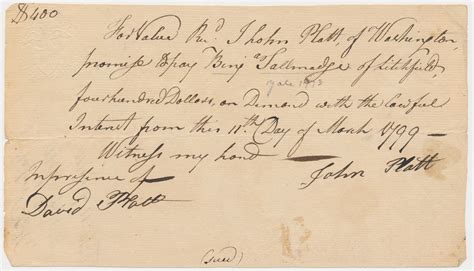 $400
For Value Recd. I John Platt, of Washington,
promise to pay Benjn. Tallmadge of Litchfield,
Yale 1773
four hundred Dollars, on Demand with the lawful
Interest from this 11th. Day of March 1799 —
Witness my hand —
In presence of John Platt
David Platt
(sued)